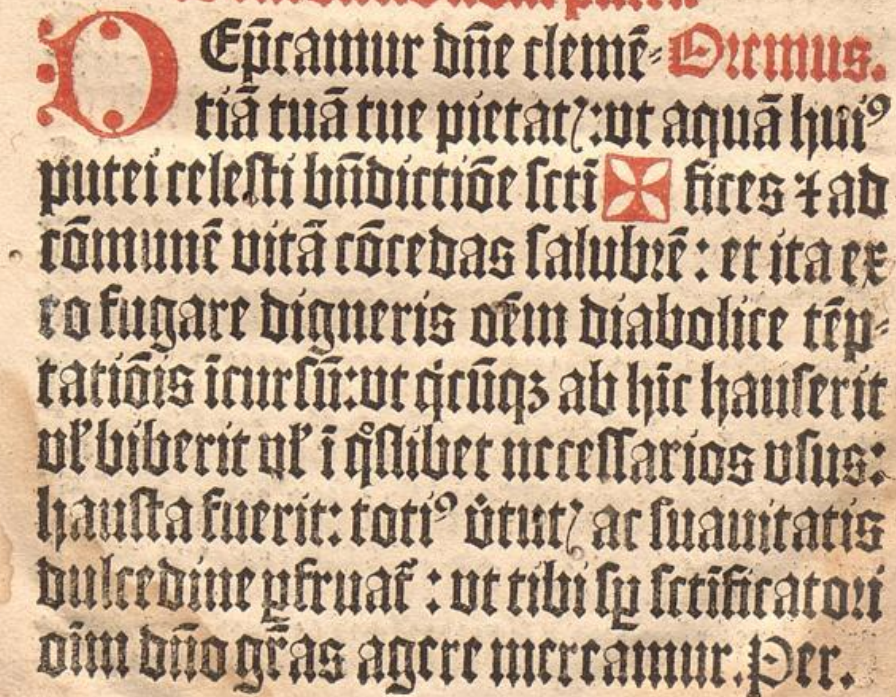 DEp̄camur dñe clemē⸗ Oremus.
tiā tuā tue pietatꝭ: vt aquā huiꝰ
putei celesti bn̄dictiōe scti ✠ fices ⁊ ad
cōmunē vitā cōcedas salubrē: et ita ex
eo fugare digneris oēm diabolice tēp⸗
tatiōis īcursū: vt q̇cūqꝫ ab hīc hauserit
vl̓ biberit vl̓ ī qͦslibet necessarios vsus:
hausta fuerit: totiꝰ v̓tutꝭ ac suauitatis
dulcedine ꝑfruat᷑: vt tibi sꝑ sctīficatori
oīm dño gr̄as agere mereamur. Per.